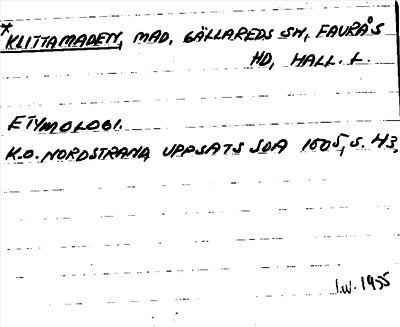 *KLITTAMADEN, MAD, GÄLLAREDS SN, FAURÅS
HD, HALL. L.
ETYMOLOGI.
K.O. NORDSTRAND, UPPSATS SOA 1605, S. 43,
I.W. 1955